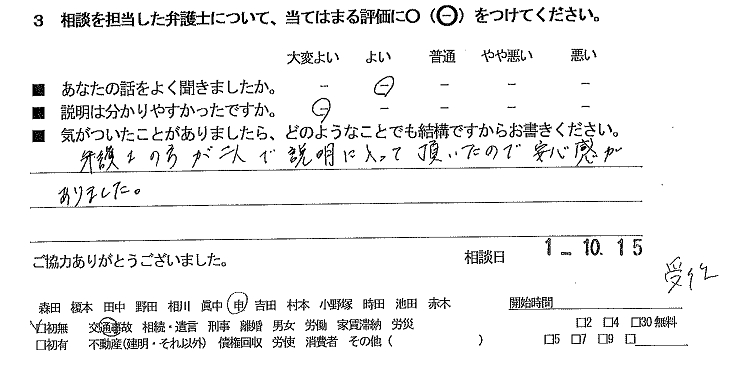 3 相談を担当した弁護士について、当てはまる評価に○（㊀）をつけてください。
大変よい よい 普通 やや悪い 悪い
■ あなたの話をよく聞きましたか。 － － － － －
■ 説明は分かりやすかったですか。 － － － － －
■ 気がついたことがありましたら、どのようなことでも結構ですからお書きください。
弁護士の方が二人で説明に入って頂いたので安心感が
ありました。
ご協力ありがとうございました。 相談日 1 － 10. 15
受付
森田 榎本 田中 野田 相川 眞中 申 吉田 村本 小野塚 時田 池田 赤木 開始時間
□初無 交通事故 相続・遺言 刑事 離婚 男女 労働 家賃滞納 労災 □2 □4 □30無料
□初有 不動産(建明・それ以外) 債権回収 労使 消費者 その他（ ） □5 □7 □9 □